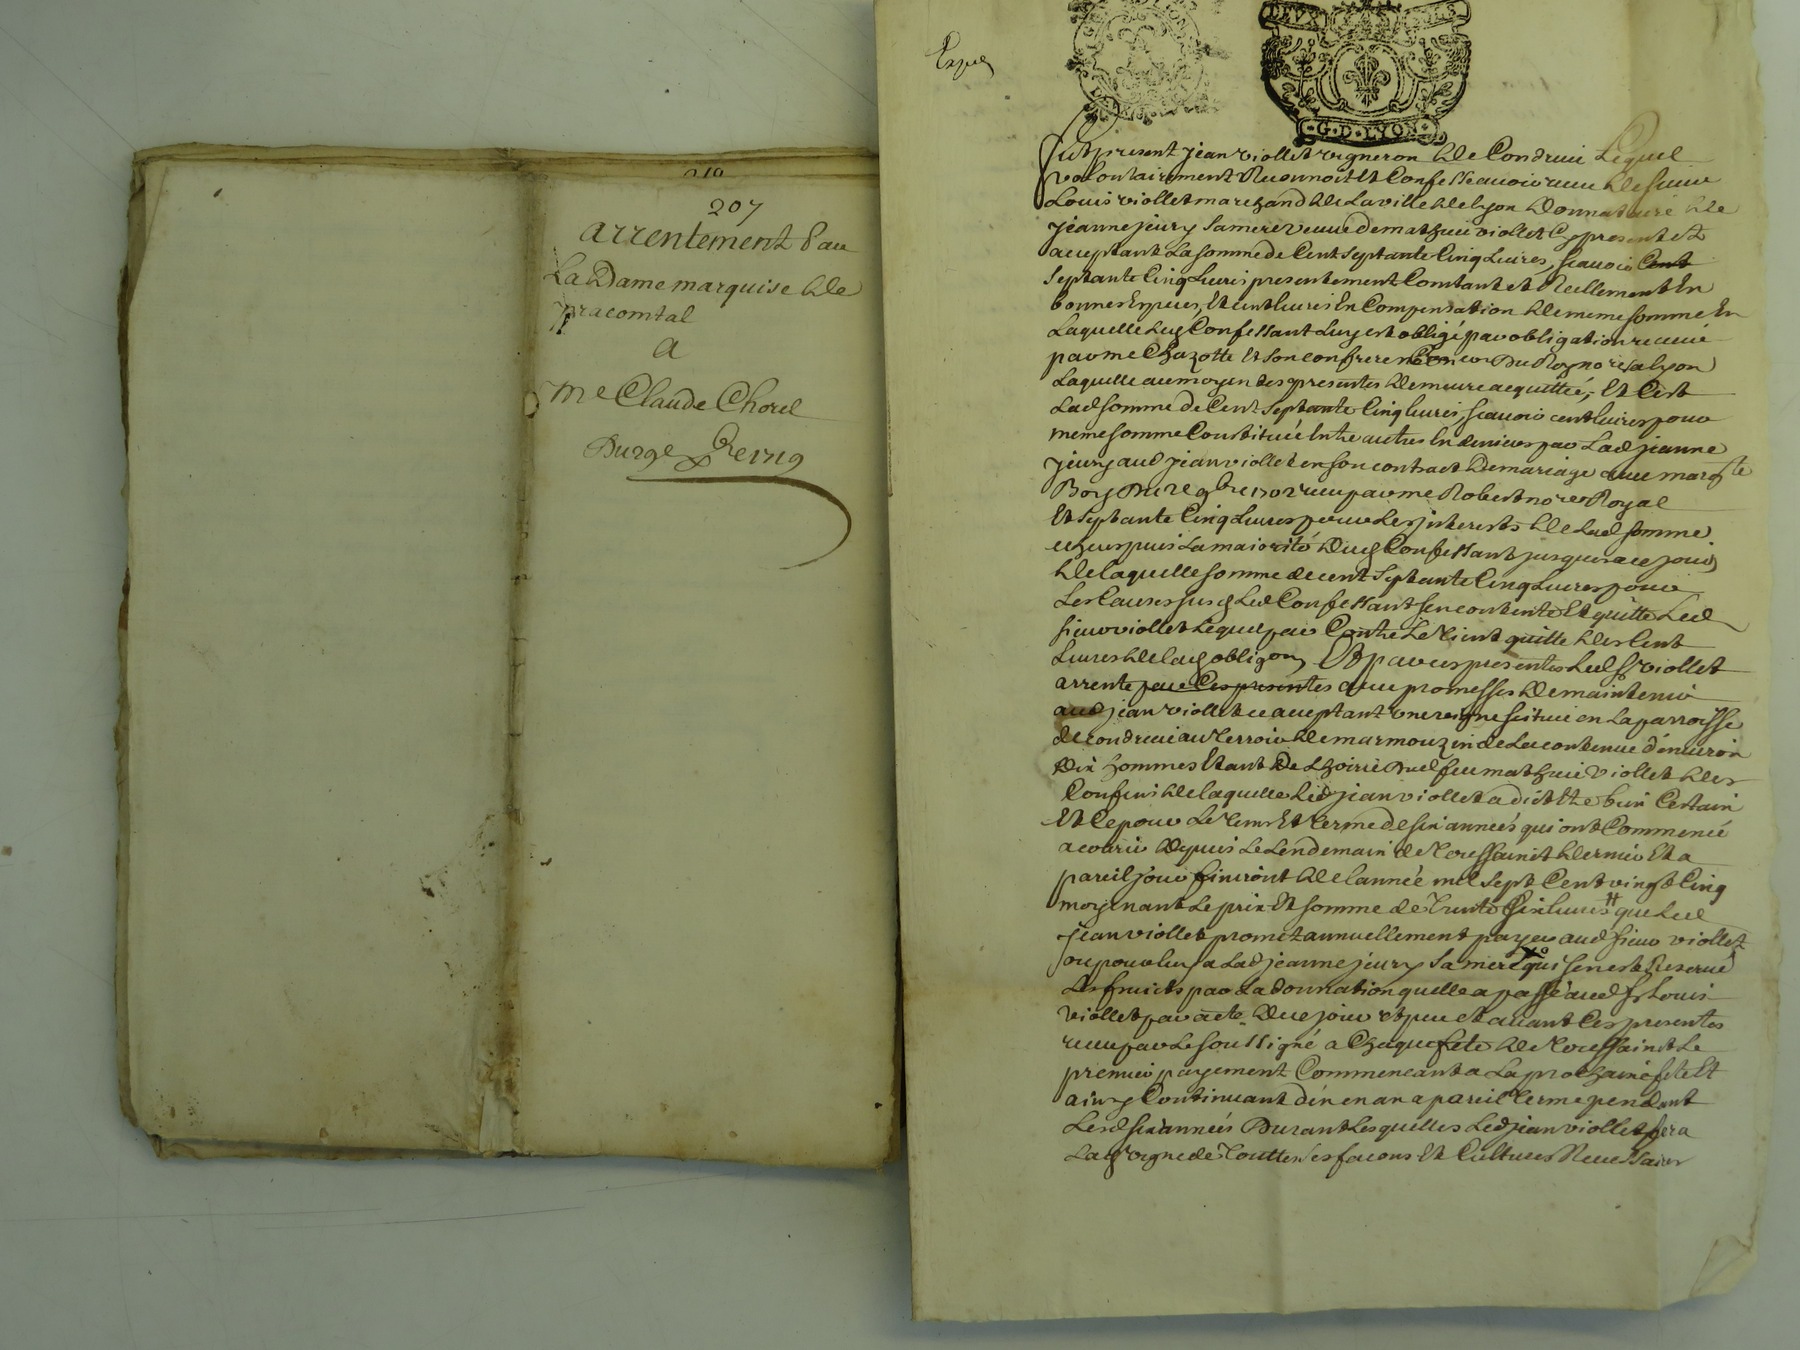 210
207
arrentement par
La Dame marquise de
pracomtal
A
me Claude Chorel
Du 29e xbre 1719
Expeд
DEUX
Fut present jean viollet vigneron de Condrieu Lequel
volontairement Reconnoit et Confesse avoir receu de sieur
Louis viollet marchand de La ville de Lyon donnataire de
jeanne jeury sa mere veuve de mathieu viollet Cy present et
acceptant La somme de Cent septante Cinq Livres, scavoir Cent
septante Cinq Livres presentement Comtant et Reellement En
bonnes Especes, Et cent livres En Compensation de meme somme En
Laquelle Led Confessant Luy est obligé par obligation receue
par me Chazotte Et son confrere Coner du Roy nores a lyon
Laquelle au moyen des presentes demeure acquittée, Et C'est
Lad somme de Cent septante Cinq livres, scavoir cent livres pour
meme somme Constituée Entre autres En deniers par Lad jeanne
jeury aud jean viollet en son contract de mariage avec margte
Boy du 9bre 1702 receu par me Robert nore Royal
Et septante Cinq Livres pour Les jnterests de Lad somme
echeus puis La maiorité dud Confessant jusques a ce jour
de laquelle somme de cent septante Cinq Livres pour
Les Causes susd Led Confessant s'en contente Et quitte Led
sieur viollet Lequel par Contre Le tient quitte des Cent
Livres de lad obligon, Et par ces presentes Led sr viollet
arrente par Ces presentes avec promesses de maintenir
aud jean viollet ce acceptant une vigne scituée en La parroisse
de Condrieu au terroir de marmouzin de La contenue d'environ
dix hommes Etant de L'hoirie dud feu mathieu viollet des
Confins de laquelle Led jean viollet a dict Etre bien Certain
Et Ce pour Le tems Et terme de six années qui ont Commencé
a courir depuis Le Lendemain de toussainct dernier Et a
pareil jour finiront de l'année mil sept Cent vingt Cinq
moyenant Le prix Et somme de trente six livres que Led
jean viollet promet annuellement payer aud sieur viollet
ou pour luy a Lad jeanne jeury sa mere qui s'en est Reservé
Les fruicts par La donnation quelle a passé aud sr Louis
viollet par acte de ce jour et peu et avant Ces presentes
receu par Le soussigné a Chaque fete de toussainct Le
premier payement Commencant a La prochaine fete Et
ainsy Continuant d'an en an a pareil terme pendant
Lesd six années Durant Lesquelles Led jean viollet fera
Lad vigne de touttes ses facons Et Cultures Necessaires